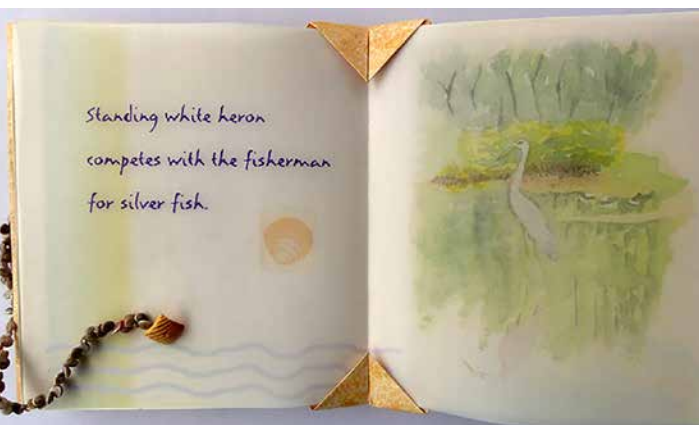 Standing white heron
competes with the fisherman
for silver fish.